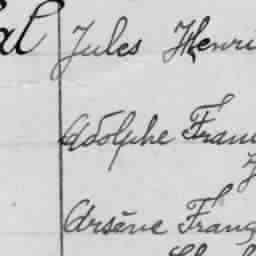 al Jules Henri
Adolphe Fran
Arsène Franç